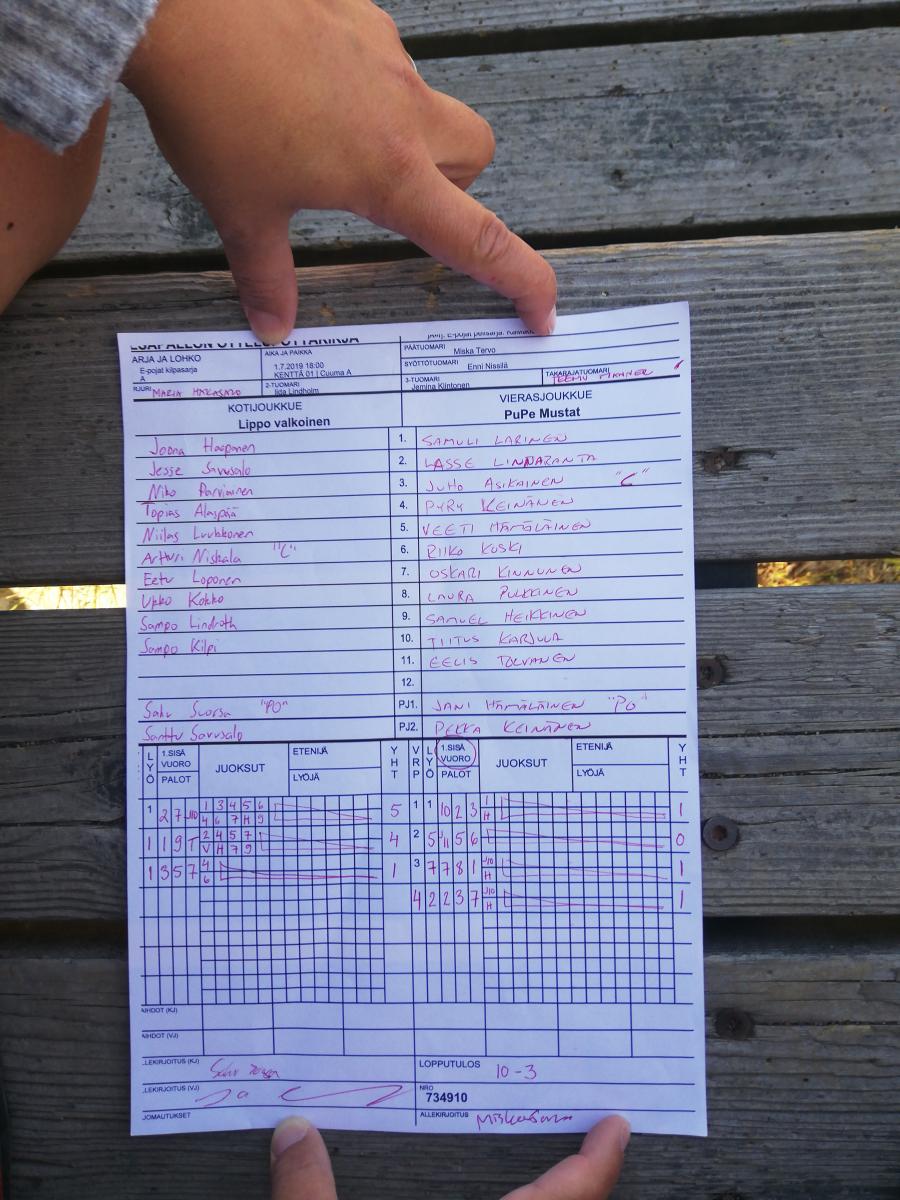 ESAPALLON OTTELUPÖYTÄKIRJA
ARJA JA LOHKO
E-pojat kilpasarja
A
AIKA JA PAIKKA
1.7.2019 18:00
KENTTÄ 01 | Cuuma A
PÄÄTUOMARI
Miska Tervo
SYÖTTÖTUOMARI
Enni Nissilä
MARIA HAKASALO
2-TUOMARI
Iida Lindholm
3-TUOMARI
Jemina Klintonen
TAKARAJATUOMARI
KOTIJOUKKUE
Lippo valkoinen
VIERASJOUKKUE
PuPe Mustat
Joona Haapanen 1. SAMULI LARINEN
Jesse Savusalo 2. LASSE LINNARANTA
Niko Parviainen 3. JUHO ASIKAINEN "C"
Topias Alaspää 4. PYRY KEINÄNEN
Niilas Luukkonen 5. VEETI HÄMÄLÄINEN
Artturi Niskala "C" 6. RIIKO KOSKI
Eetu Loponen 7. OSKARI KINNUNEN
Ukko Kokko 8. LAURA PULKKINEN
Sampo Lindroth 9. SAMUEL HEIKKINEN
Sampo Kilpi 10. TIITUS KARJULA
11. EELIS TOLVANEN
12.
Saku Suorsa "PO" PJ1. JANI HÄMÄLÄINEN "PO"
Santtu Savusalo PJ2. PEKKA KEINÄNEN
LYÖ 1.SISÄ VUORO PALOT JUOKSUT ETENIJÄ LYÖJÄ YHT VRP LYÖ 1.SISÄ VUORO PALOT JUOKSUT ETENIJÄ LYÖJÄ YHT
1 2 7 J10 1 3 4 5 6 5 1 1 10 2 3 1 1
4 6 7 H 9 H
1 1 9 T 2 4 5 7 4 2 5 J11 5 6 0
V H 7 9
1 3 5 7 4 1 3 7 7 8 1 J10 1
6 H
4 2 2 3 7 J10 1
H
AIHDOT (KJ)
AIHDOT (VJ)
LEKIRJOITUS (KJ)
LOPPUTULOS
10-3
LEKIRJOITUS (VJ)
NRO
734910
JOMAUTUKSET
ALLEKIRJOITUS